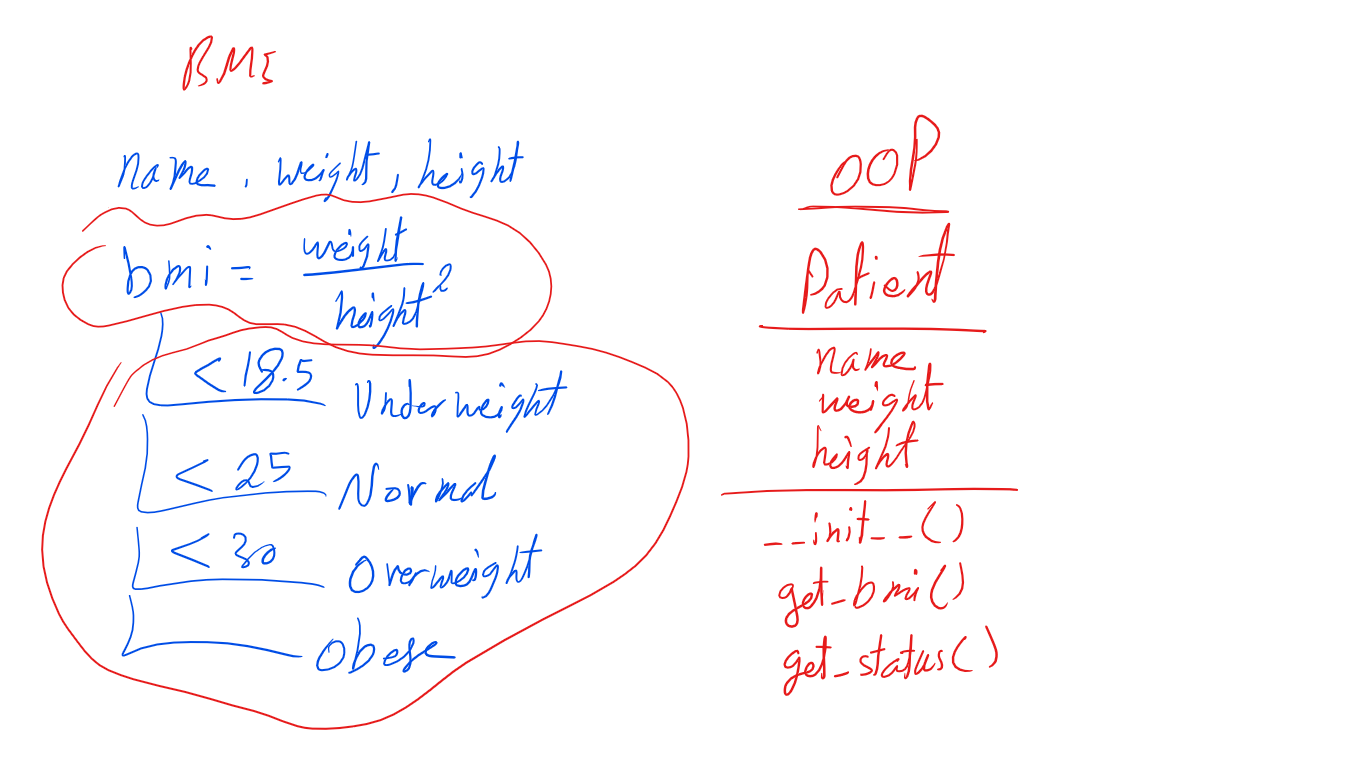 BMI
name, weight, height
bmi = weight / height²
< 18.5 Underweight
< 25 Normal
< 30 Overweight
Obese
OOP
Patient
name
weight
height
__init__()
get_bmi()
get_status()